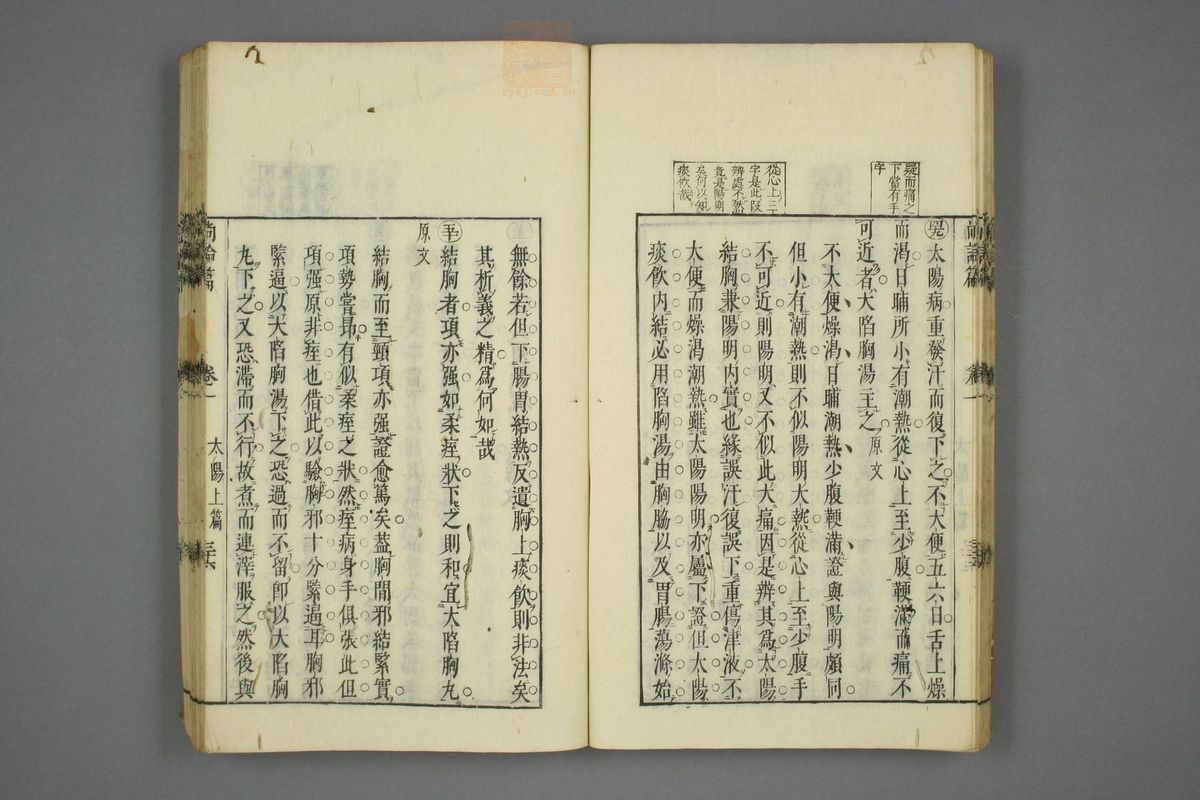 疑而痛之
下當有手
字
從心上三
字是此叚
辨處不然
竟是陽明
矣何以知
痰飲哉
太陽病重發汗而復下之不大便五六日舌上燥
而渴日晡所小有潮熱從心上至少腹鞕滿而痛不
可近者大陷胸湯主之原文
不大便燥渴日晡潮熱少腹鞕滿證與陽明頗同
但小有潮熱則不似陽明大熱從心上至少腹手
不可近則陽明又不似此大痛因是辨其為太陽
結胸兼陽明內實也緣誤汗復誤下重傷津液不
大便而燥渴潮熱雖太陽陽明亦屬下證但太陽
痰飲內結必用陷胸湯由胸脇以及胃腸蕩滌始
無餘若但下腸胃結熱反遺胸上痰飲則非法矣
其析義之精為何如哉
結胸者項亦强如柔痓狀下之則和宜大陷胸丸
原文
結胸而至頸項亦强證愈篤矣葢胸間邪結緊實
項勢嘗昂有似柔痓之狀然痓病身手俱張此但
項强原非痓也借此以驗胸邪十分緊逼耳胸邪
緊逼以大陷胸湯下之恐過而不留卽以大陷胸
丸下之又恐滯而不行故煮而連滓服之然後與
尚論篇 卷一 太陽上篇 三十六